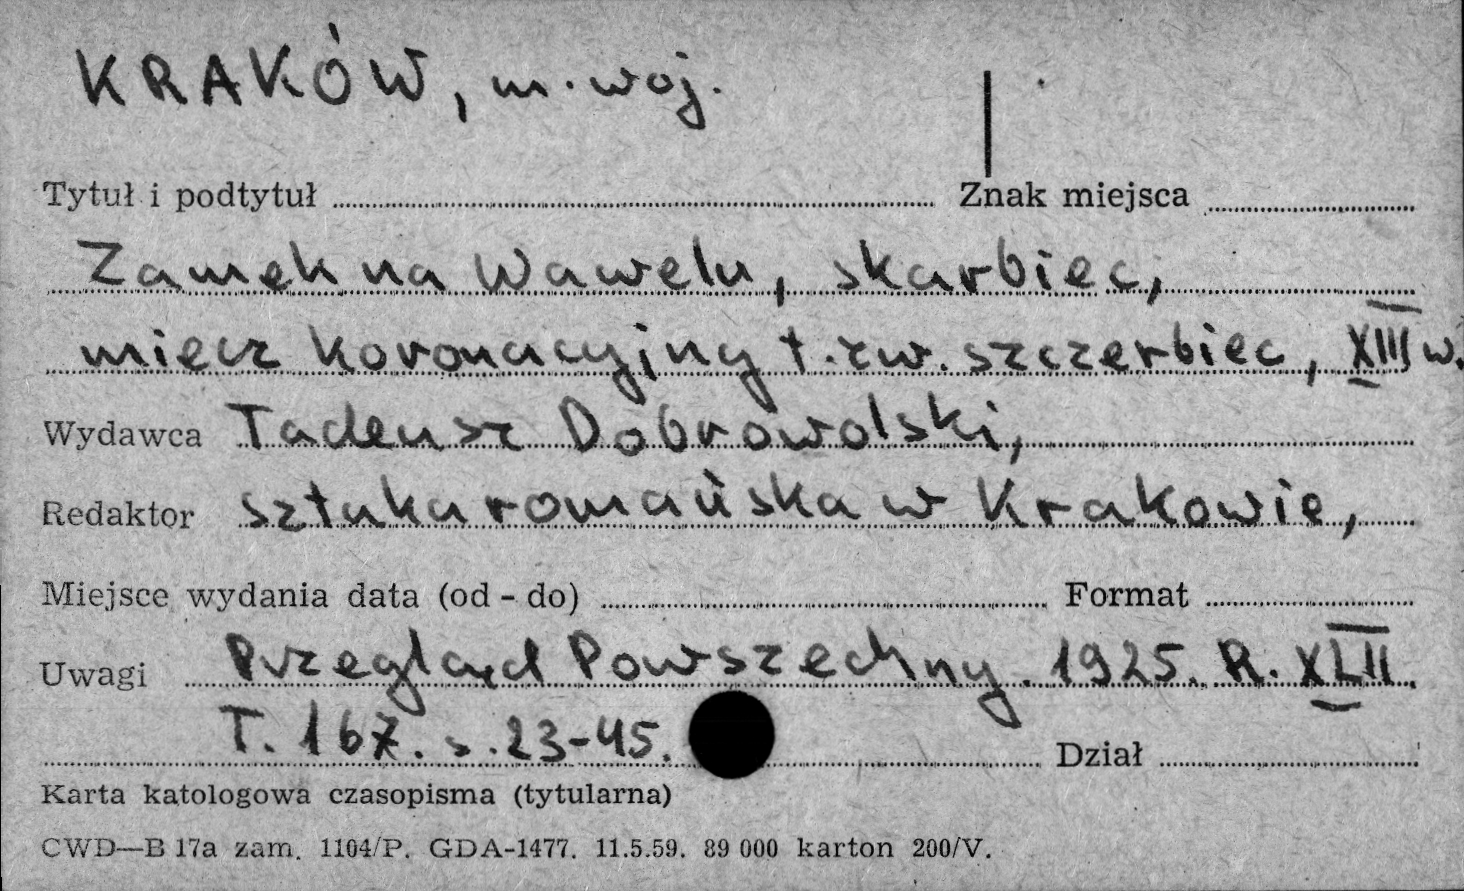 KRAKÓW, m. woj.
Tytuł i podtytuł Znak miejsca
Zamek na Wawelu, skarbiec,
miecz koronacyjny t. zw. szczerbiec, XIII w.
Wydawca Tadeusz Dobrowolski,
Redaktor sztuka romańska w Krakowie,
Miejsce wydania data (od - do) Format
Uwagi Przegląd Powszechny. 1925. R. XLII.
T. 167. s. 23-45. Dział
Karta katologowa czasopisma (tytularna)
CWD—B 17a zam. 1104/P. GDA-1477. 11.5.59. 89 000 karton 200/V.